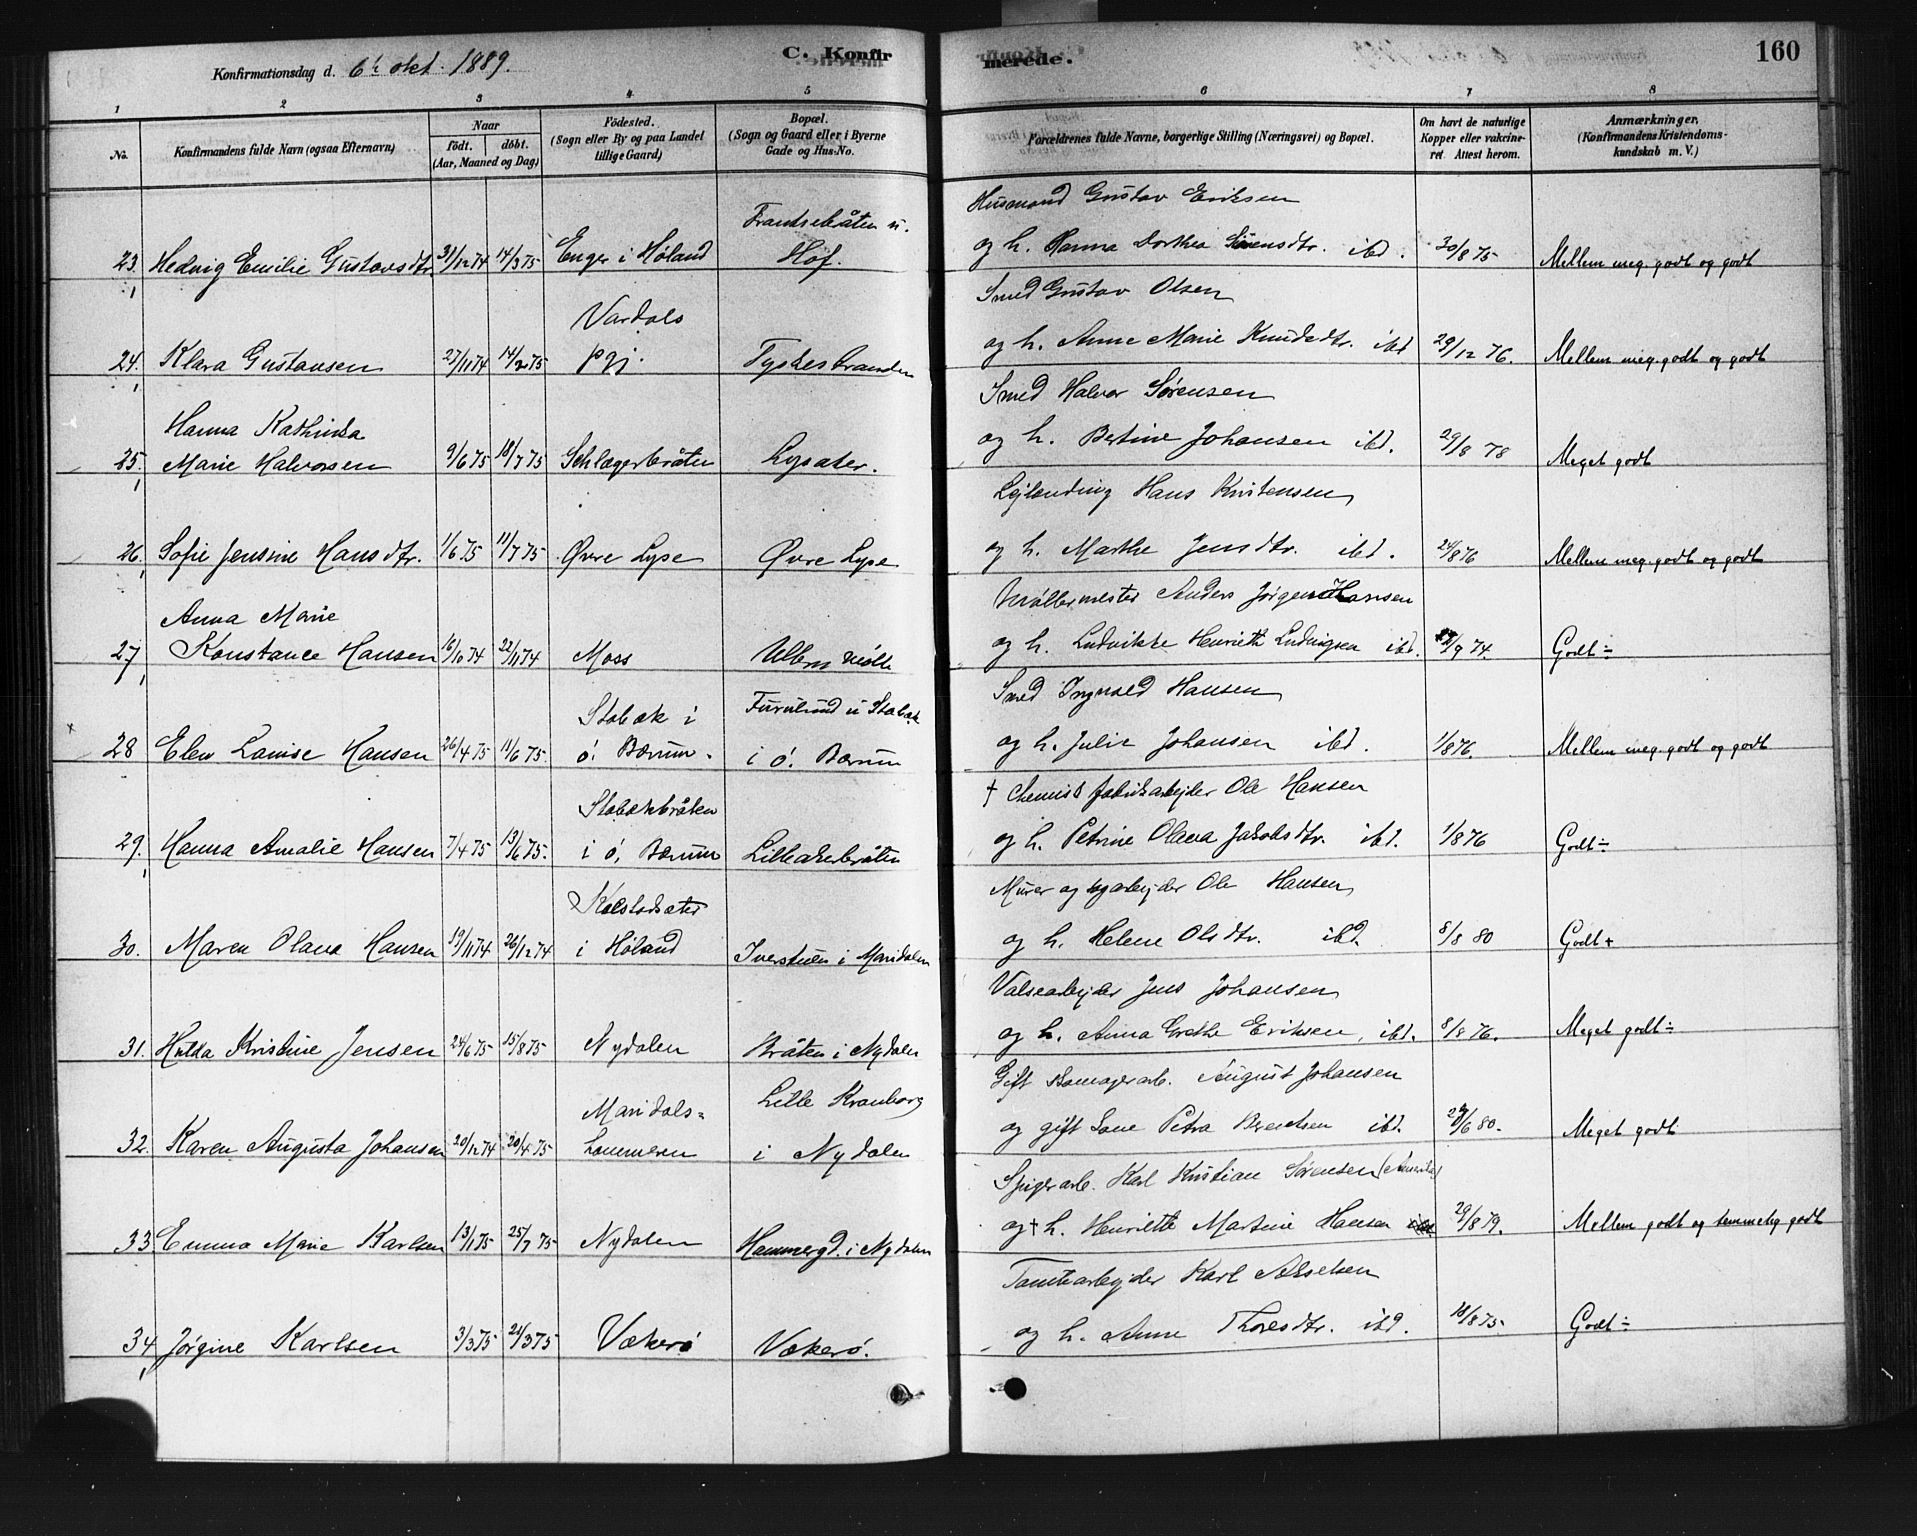 Konfirmationsdag d. 6te okt. 1889.
C. Konfirmerede.
160
1 2 3 4 5 6 7 8
No.
Konfirmandens fulde Navn (ogsaa Efternavn)
Naar
födt. döbt.
(Aar, Maaned og Dag)
Födested.
(Sogn eller By og paa Landet
tillige Gaard)
Bopæl.
(Sogn og Gaard eller i Byerne
Gade og Hus-No.
Forældrenes fulde Navne, borgerlige Stilling (Næringsvei) og Bopæl.
Om havt de naturlige
Kopper eller vakcine-
ret Attest herom.
Anmærkninger,
(Konfirmandens Kristendoms-
kundskab m. V.)
Frantsebråten u. Husmand Gustav Eriksen
23. Hedvig Emilie Gustavsdtr. 31/12 74 14/3 75 Enger i Høland Hof. og h. Hanna Dorthea Sørensdtr. ibd. 30/8 75 Mellem meg. godt og godt
Vardals Smed Gustav Olsen
24. Klara Gustavsen 27/11 74 14/2 75 pgj. Tyskestranden og h. Anne Marie Knudsdtr. ibd 29/12 76. Mellem meg. godt og godt
Hanna Kathinka Smed Halvor Sørensen
25. Marie Halvorsen 9/6 75 18/7 75 Schlægerbråten Lysaker. og h. Bertine Johansen ibd. 29/8 78 Meget godt
Lejlending Hans Kristensen
26. Sofie Jensine Hansdtr. 1/6 75 11/7 75 Øvre Lyse Øvre Lyse og h. Marthe Jensdtr. ibd. 24/8 76 Mellem meg. godt og godt
Anna Marie Møllermester Anders Jørgen Hansen
27. Konstance Hansen 16/10 74 22/11 74 Moss Ullern Mølle og h. Ludvikke Henriette Ludvigsen ibd. /9 74. Godt ÷
Stabæk i Furulund u Stabæk Smed Ingvald Hansen
28 Elen Lovise Hansen 26/4 75 11/6 75. ö. Bærum. i ö. Bærum og h. Julie Johansen ibd. 1/8 76. Mellem meg. godt og godt
Stabækbråten † Chemisk fabrikarbejder Ole Hansen
29. Hanna Amalie Hansen 7/4 75 13/6 75. i ö. Bærum Lilleakerbråten og h. Petrine Olava Jakobsdtr. ibd. 1/8 76 Godt ÷
Murer og bygarbejder Ole Hansen
30. Maren Olava Hansen 19/11 74 26/12 74 i Høland Iverstuen i Maridalen og h. Helene Olsdtr. ibd. 8/8 80 Godt +
Valsearbejder Jens Johansen
31. Hulda Kristine Jensen 24/6 75 15/8 75 Nydalen Bråten i Nydalen og h. Anna Grethe Eriksen, ibd. 8/8 76. Meget godt ÷
Maridals= Lille Kranborg Gift August Johansen
32. Karen Augusta Johansen 20/12 74 20/4 75 hammeren i Nydalen og gift Lone Petra Berentsen ibd. /6 80. Meget godt
Spigerarb. Karl Kristian Sørensen (Amerika)
33 Emma Marie Karlsen 13/1 75 25/7 75 Nydalen Hammergd. i Nydalen og † h. Henriette Martine Hansen 29/8 79. Mellem godt og temmelig godt
Tomtearbejder Karl Akselsen
34 Jørgine Karlsen 3/3 75 21/3 75 Vækerö Vækerö. og h. Anne Thoresdtr. ibd. 18/8 75. Godt ÷